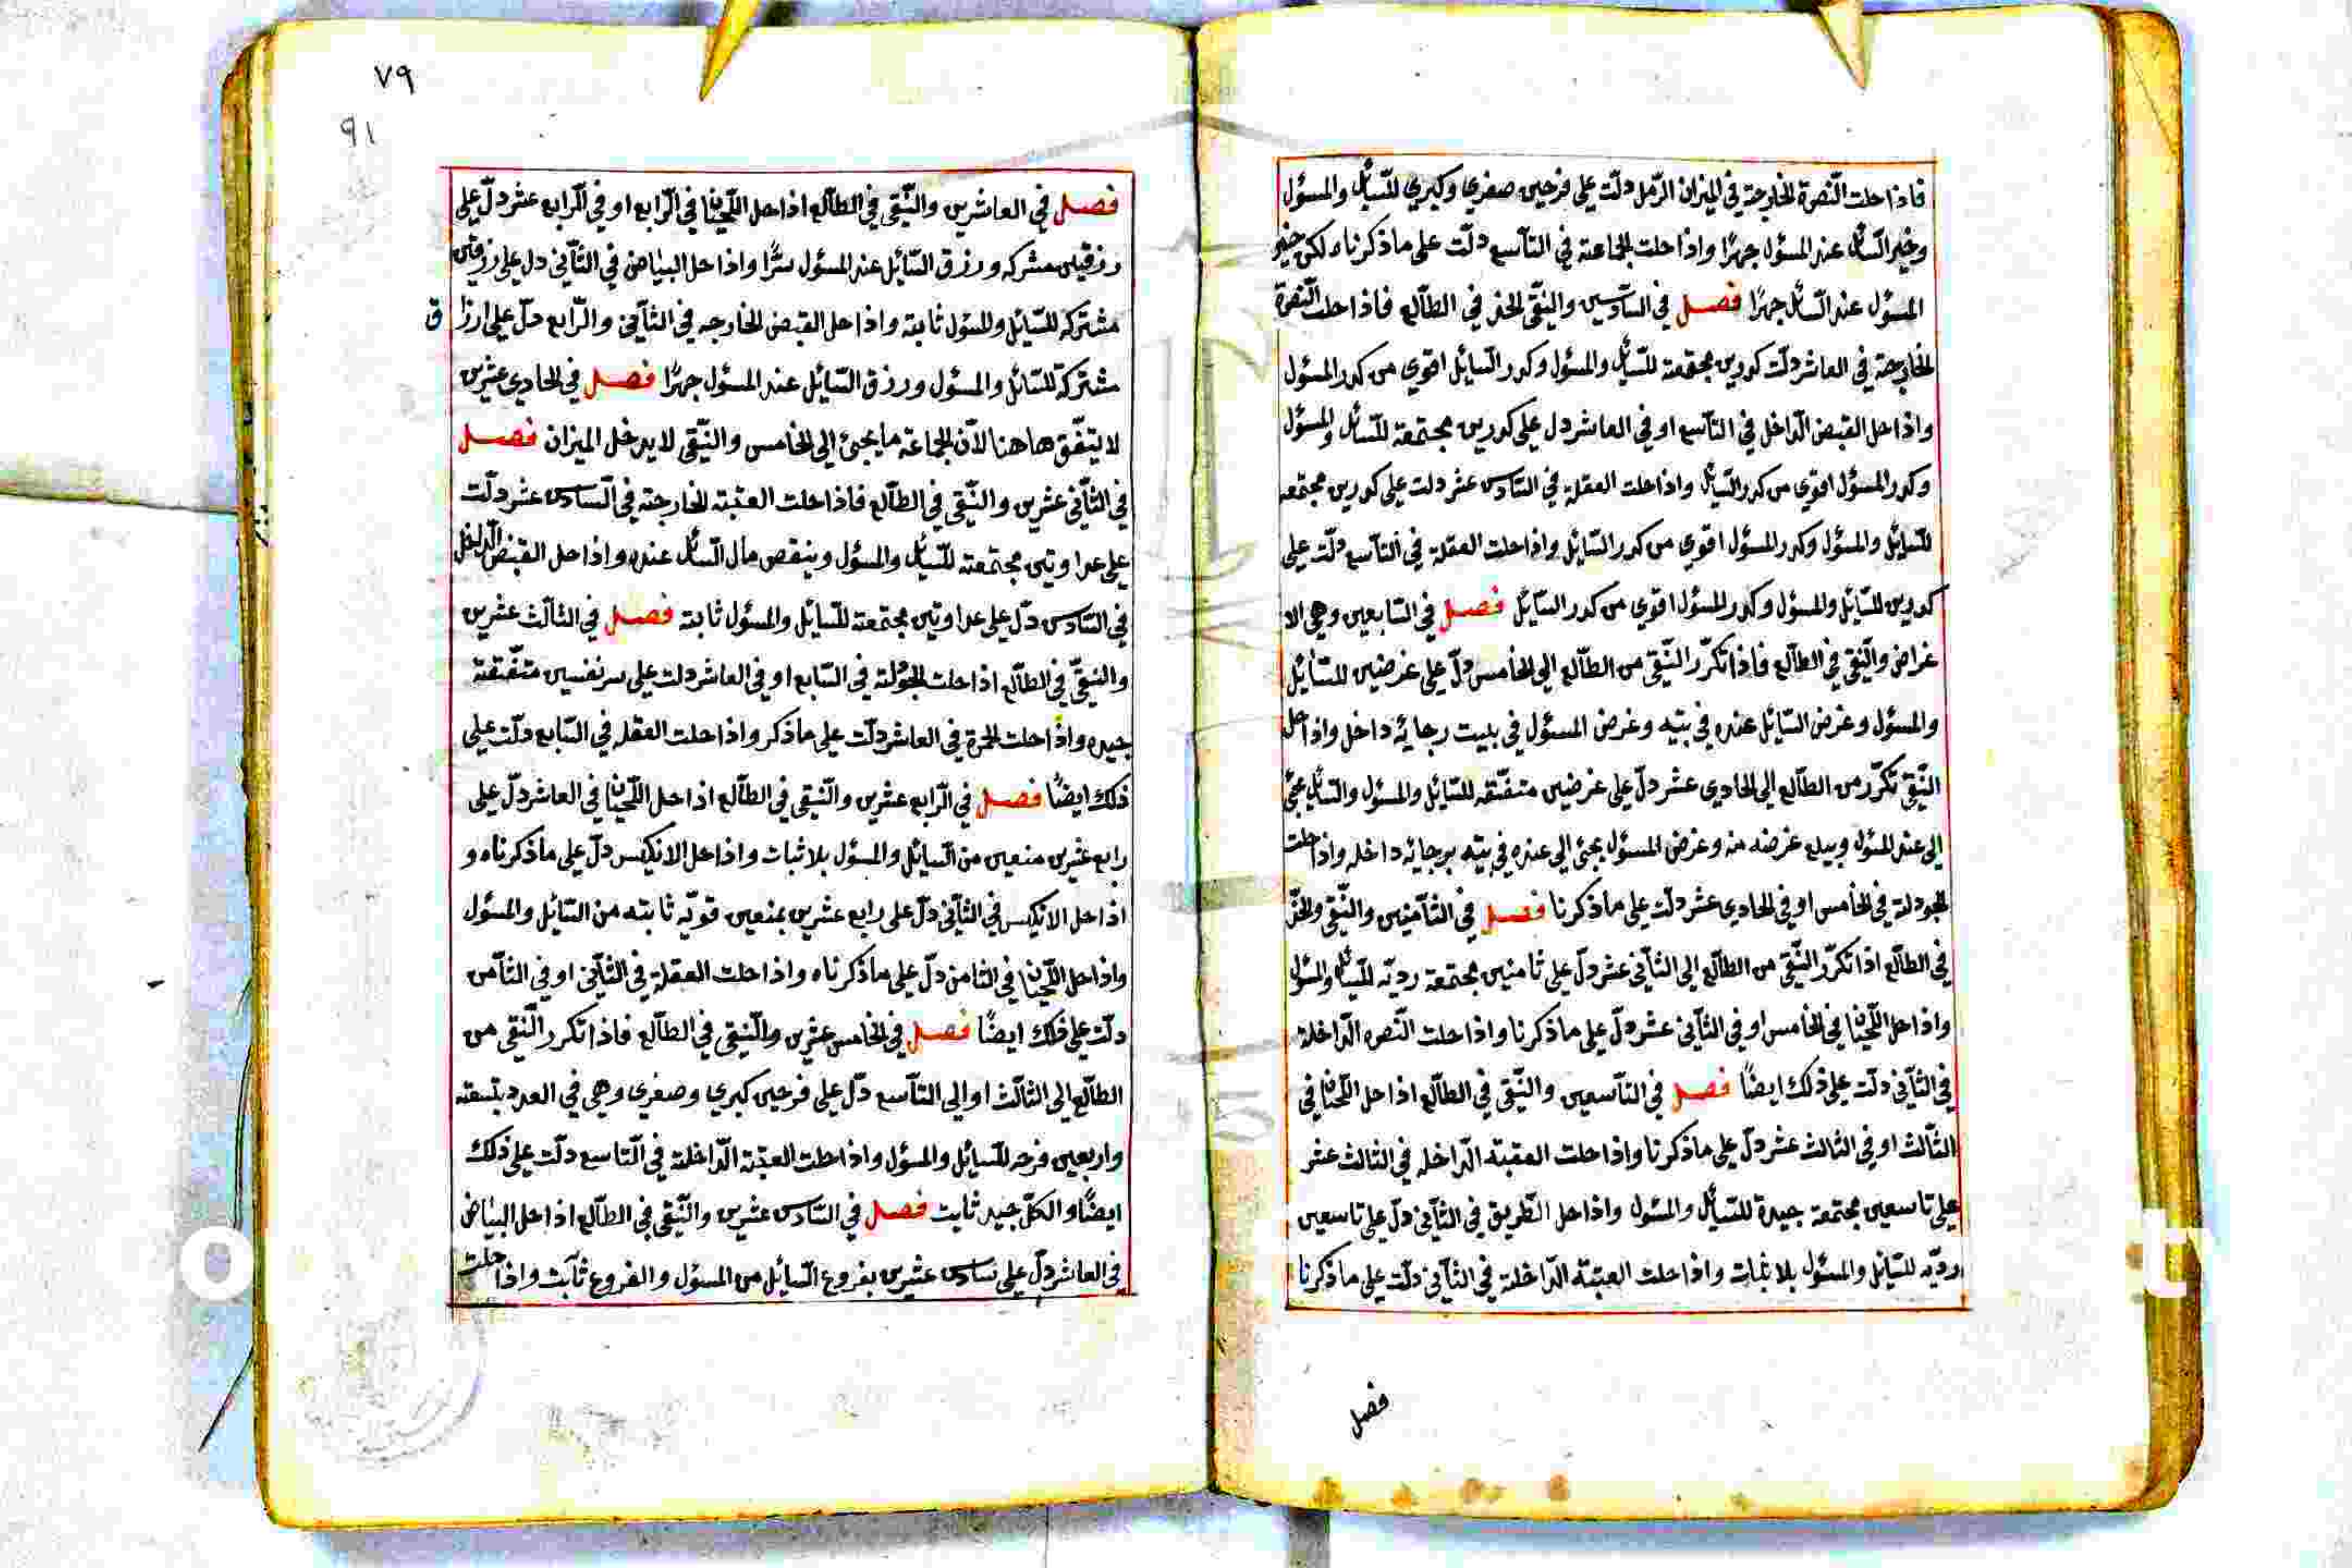 فاذا حلت النّصرة الخارجة في الميزان الرّمل دلّت على فرحين صغري وكبري للسّائل والمسؤل
وخبر السّائل عند المسؤل جهرًا واذا حلت الجماعة في التاسع دلّت على ما ذكرناه لكن خبر
المسؤل عند السّائل جهرًا فصل في السّادسين والنقّي الخذ في الطالع فاذا حلت النّصرة
الخارجة في العاشر دلّت كدورين مجتمعة للسّائل والمسؤل وكدر السّائل اقوي من كدر المسؤل
واذا حل القبض الداخل في التاسع او في العاشر دل على كدورين مجتمعة للسّائل والمسؤل
وكدر المسؤل اقوي من كدر السّائل واذا حلت العقلة في السّادس عشر دلت على كدورين مجتمعه
للسّائل والمسؤل وكدر المسؤل اقوي من كدر السّائل واذا حلت العقلة في التاسع دلّت على
كدورين للسّائل والمسؤل وكدر المسؤل اقوي من كدر السّائل فصل في السّابعين وهي الا
غراض والنّقي في الطالع فاذا تكرّر النّقي من الطالع الى الخامس دلّ على غرضين للسّائل
والمسؤل وغرض السّائل عنده في بيته وغرض المسؤل في بليت رجايه داخل واذا حل
النّقي تكرّر من الطالع الى الحادي عشر دلّ على غرضين متفّقه للسّائل والمسؤل والسّائل يجئ
الى عند المسؤل ويبلع غرضه منه وغرض المسؤل يجئ الى عنده في بيته برجائه داخله واذا حلت
الجودلة في الخامس او في الحادي عشر دلت على ما ذكرنا فصل في الثّامنين والنّقي والخدّ
في الطالع اذا تكرّر النّقي من الطالع الى الثاني عشر دلّ على ثامنين مجتمعة رديّه للسّائل والمسؤل
واذا حل اللّحيانا في الخامس او في الثاني عشر دلّ على ما ذكرنا واذا حلت النّصره الدّاخلة
في الثّاني دلّت على ذلك ايضًا فصل في التاسعين والنّقي في الطالع اذا حل اللّحيانا في
الثّالث او في الثالث عشر دلّ على ما ذكرنا واذا حلت العقبة الدّاخله في الثالث عشر
على تاسعين مجتمعة جيدة للسّائل والمسؤل واذا حل الطّريق في الثاني دلّ على تاسعين
رديّه للسّائل والمسؤل بلا ثبات واذا حلت العتبة الدّاخلة في الثاني دلّت على ما ذكرنا
فصل
٧٩
٩١
فصل في العاشرين والنّقي في الطالع اذا حل اللّحيانا في الرّابع او في الرّابع عشر دلّ على
رزقين مشركه ورزق السّائل عند المسؤل سرًّا واذا حل البياض في الثّاني دل على رزقين
مشتركه للسّائل والمسؤل ثابته واذا حل القبض الخارجه في الثاني والرّابع دلّ على ارزاق
مشتركة للسّائل والمسؤل ورزق السّائل عند المسؤل جهرًا فصل في الحادي عشرين
لا يتفّق هاهنا لانّ الجماعة ما يجئ الى الخامس والنّقي لا يدخل الميزان فصل
في الثّاني عشرين والنّقي في الطالع فاذا حلت العتبة الخارجة في السّادس عشر دلّت
على عداوتين مجتمعة للسّائل والمسؤل وينقص مال السّائل عنده واذا حل القبض الداخل
في السّادس دلّ على عداوتين مجتمعة للسّائل والمسؤل ثابته فصل في الثالث عشرين
والنقّي في الطالع اذا حلت الجودلة في السّابع او في العاشر دلت على سر نفسين متفّقة
جيده واذا حلت الحمرة في العاشر دلّت على ما ذكر واذا حلت العقله في السّابع دلّت على
ذلك ايضًا فصل في الرّابع عشرين والنّقي في الطالع اذا حل اللّحيانا في العاشر دلّ على
رابع عشرين منعين من السّائل والمسؤل بلا ثبات واذا حل الانكيس دلّ على ما ذكرناه و
اذا حل الانكيس في الثاني دلّ على رابع عشرين بمنعين قويّه ثابته من السّائل والمسؤل
واذا حل اللّحيانا في الثامن دلّ على ما ذكرناه واذا حلت العقلة في الثاني او في الثامن
دلّت على ذلك ايضًا فصل في الخامس عشرين والنّقي في الطالع فاذا تكرر النّقي من
الطالع الى الثالث او الى التاسع دلّ على فرحين كبري وصغري وهي في العدد بتسعة
واربعين فرحه للسّائل والمسؤل واذا حلت العتبة الدّاخلة في التاسع دلّت على ذلك
ايضًا والكلّ جيد ثابت فصل في السّادس عشرين والنّقي في الطالع اذا حل البياض
في العاشر دلّ على سادس عشرين بفروع السّائل من المسؤل والفروع ثابت واذا حلت